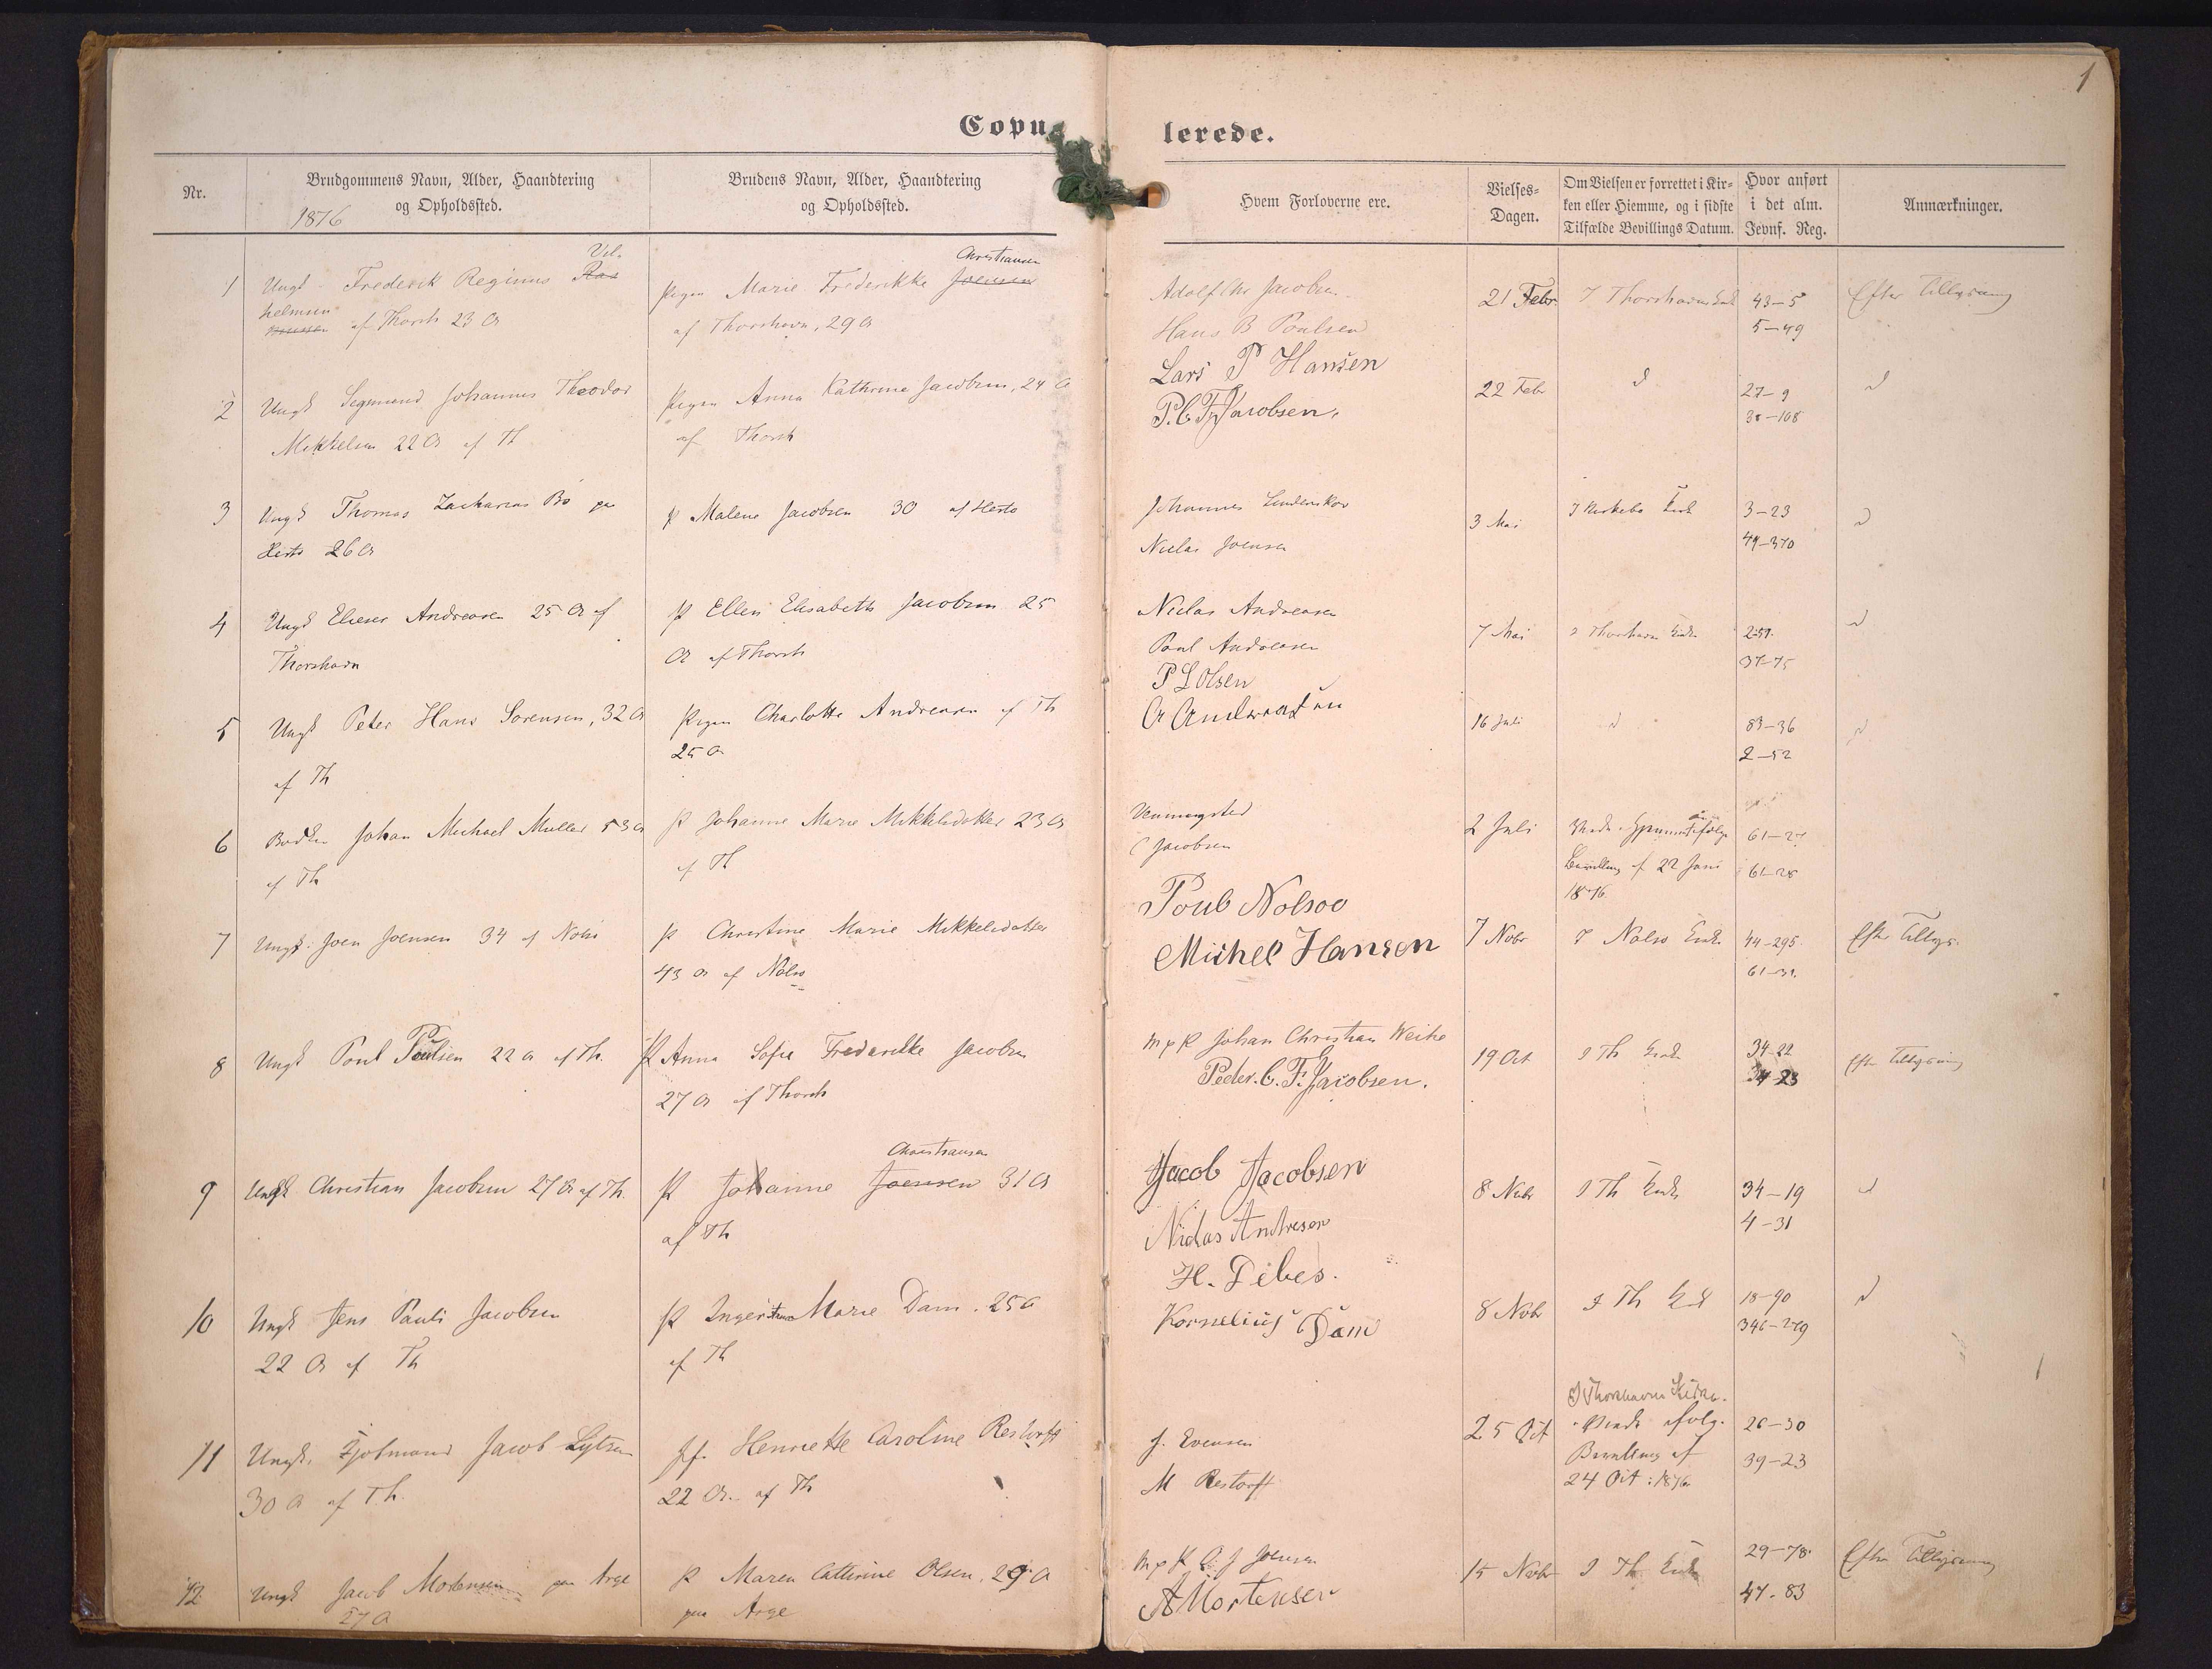 1
Copulerede.
Nr.
Brudgommens Navn, Alder, Haandtering
og Opholdssted.
1876
Brudens Navn, Alder, Haandtering
og Opholdssted.
Hvem Forloverne ere.
Vielses-
Dagen.
Om Vielsen er forrettet i Kir-
ken eller Hjemme, og i sidste
Tilfælde Bevillings Datum.
Hvor anført
i det alm.
Jevnf. Reg.
Anmærkninger.
Vil-
1 Ungk Frederik Reginus
helmsen
af Thorsh 23 A
Christiansen
Pigen Marie Frederikke Joensen
af Thorshavn, 29 A
Adolf Chr Jacobsen
Hans B Poulsen
21 Febr.
I Thorshavns Kirk
43-5
5-49
Efter Tillysning
2 Ungk Segmund Johannes Theodor
Mikkelsen 22 A af Th
Pigen Anna Kathrine Jacobsen, 24 A
af Thorsh
Lars P Hansen
P.C.F. Jacobsen.
22 Febr
d
27-9
38-108
d
3 Ungk Thomas Zacharias Bø paa
Hestø 26 A
P Malene Jacobsen 30 af Hestø
Johannes Lindenskov
Niclas Joensen
3 Mai
I Kirkebø Kirk
3-23
49-370
d
4 Ungk Elieser Andreasen 25 A af
Thorshavn
P Ellen Elisabeth Jacobsen 25
A af Thorsh
Niclas Andreasen
Poul Andreasen
7 Mai
I Thorshavn Kirke
2-51
37-75
d
5 Ungk Peter Hans Sørensen, 32 A
af Th
Pigen Charlotte Andreasen af Th
25 A
P L Olsen
A Andreasen
16 Juli
d
83-36
2-52
d
6 Johan Michael Müller 53 A
af Th
P Johanne Marie Mikkelsdatter 23 A
af Th
Wenningsted
C Jacobsen
2 Juli
ifølge
Bevilling af 22 Juni
1876
61-27
61-28
7 Ungk. Joen Joensen 34 af Nolsø
P Christine Marie Mikkelsdatter
43 A af Nolsø
Poul Nolsoe
Michel Hansen
7 Nobr
I Nolsø Kirke
44-295
61-31
Efter Tillys.
8 Ungk Poul Poulsen 22 A af Th.
P Anna Sofie Frederikke Jacobsen
27 A af Thorsh
m p P Johan Christian Weihe
Peder. C. F. Jacobsen.
19 Oct
I Th Kirke
34-22
34-23
Efter Tillysning
9 Ungk Christian Jacobsen 27 A af Th.
Christiansen
P Johanne Joensen 31 A
af Th
Jacob Jacobsen
Niclas Andresen
8 Nobr
I Th Kirke
34-19
4-31
d
10 Ungk Jens Pauli Jacobsen
22 A af Th
P Inger Marie Dam. 25 A
af Th
H. Debes.
Kornelius Dam
8 Nobr
I Th Kirk
18-90
346-279
d
11 Ungk. Jacob Lützen
30 A af Th.
Henriette Caroline Restorff
22 A. af Th
J. Evensen
M Restorff
25 Oct
I Thorshavns Kirke.
ifølg.
Bevilling af
24 Oct: 1876
26-30
39-23
12 Ungk Jacob Mortensen paa Arge
27 A
P Maren Cathrine Olsen, 29 A
paa Arge
m p P J Joensen
A Mortensen
15 Nobr
I Th Kirk
29-78
47-83
Efter Tillysning